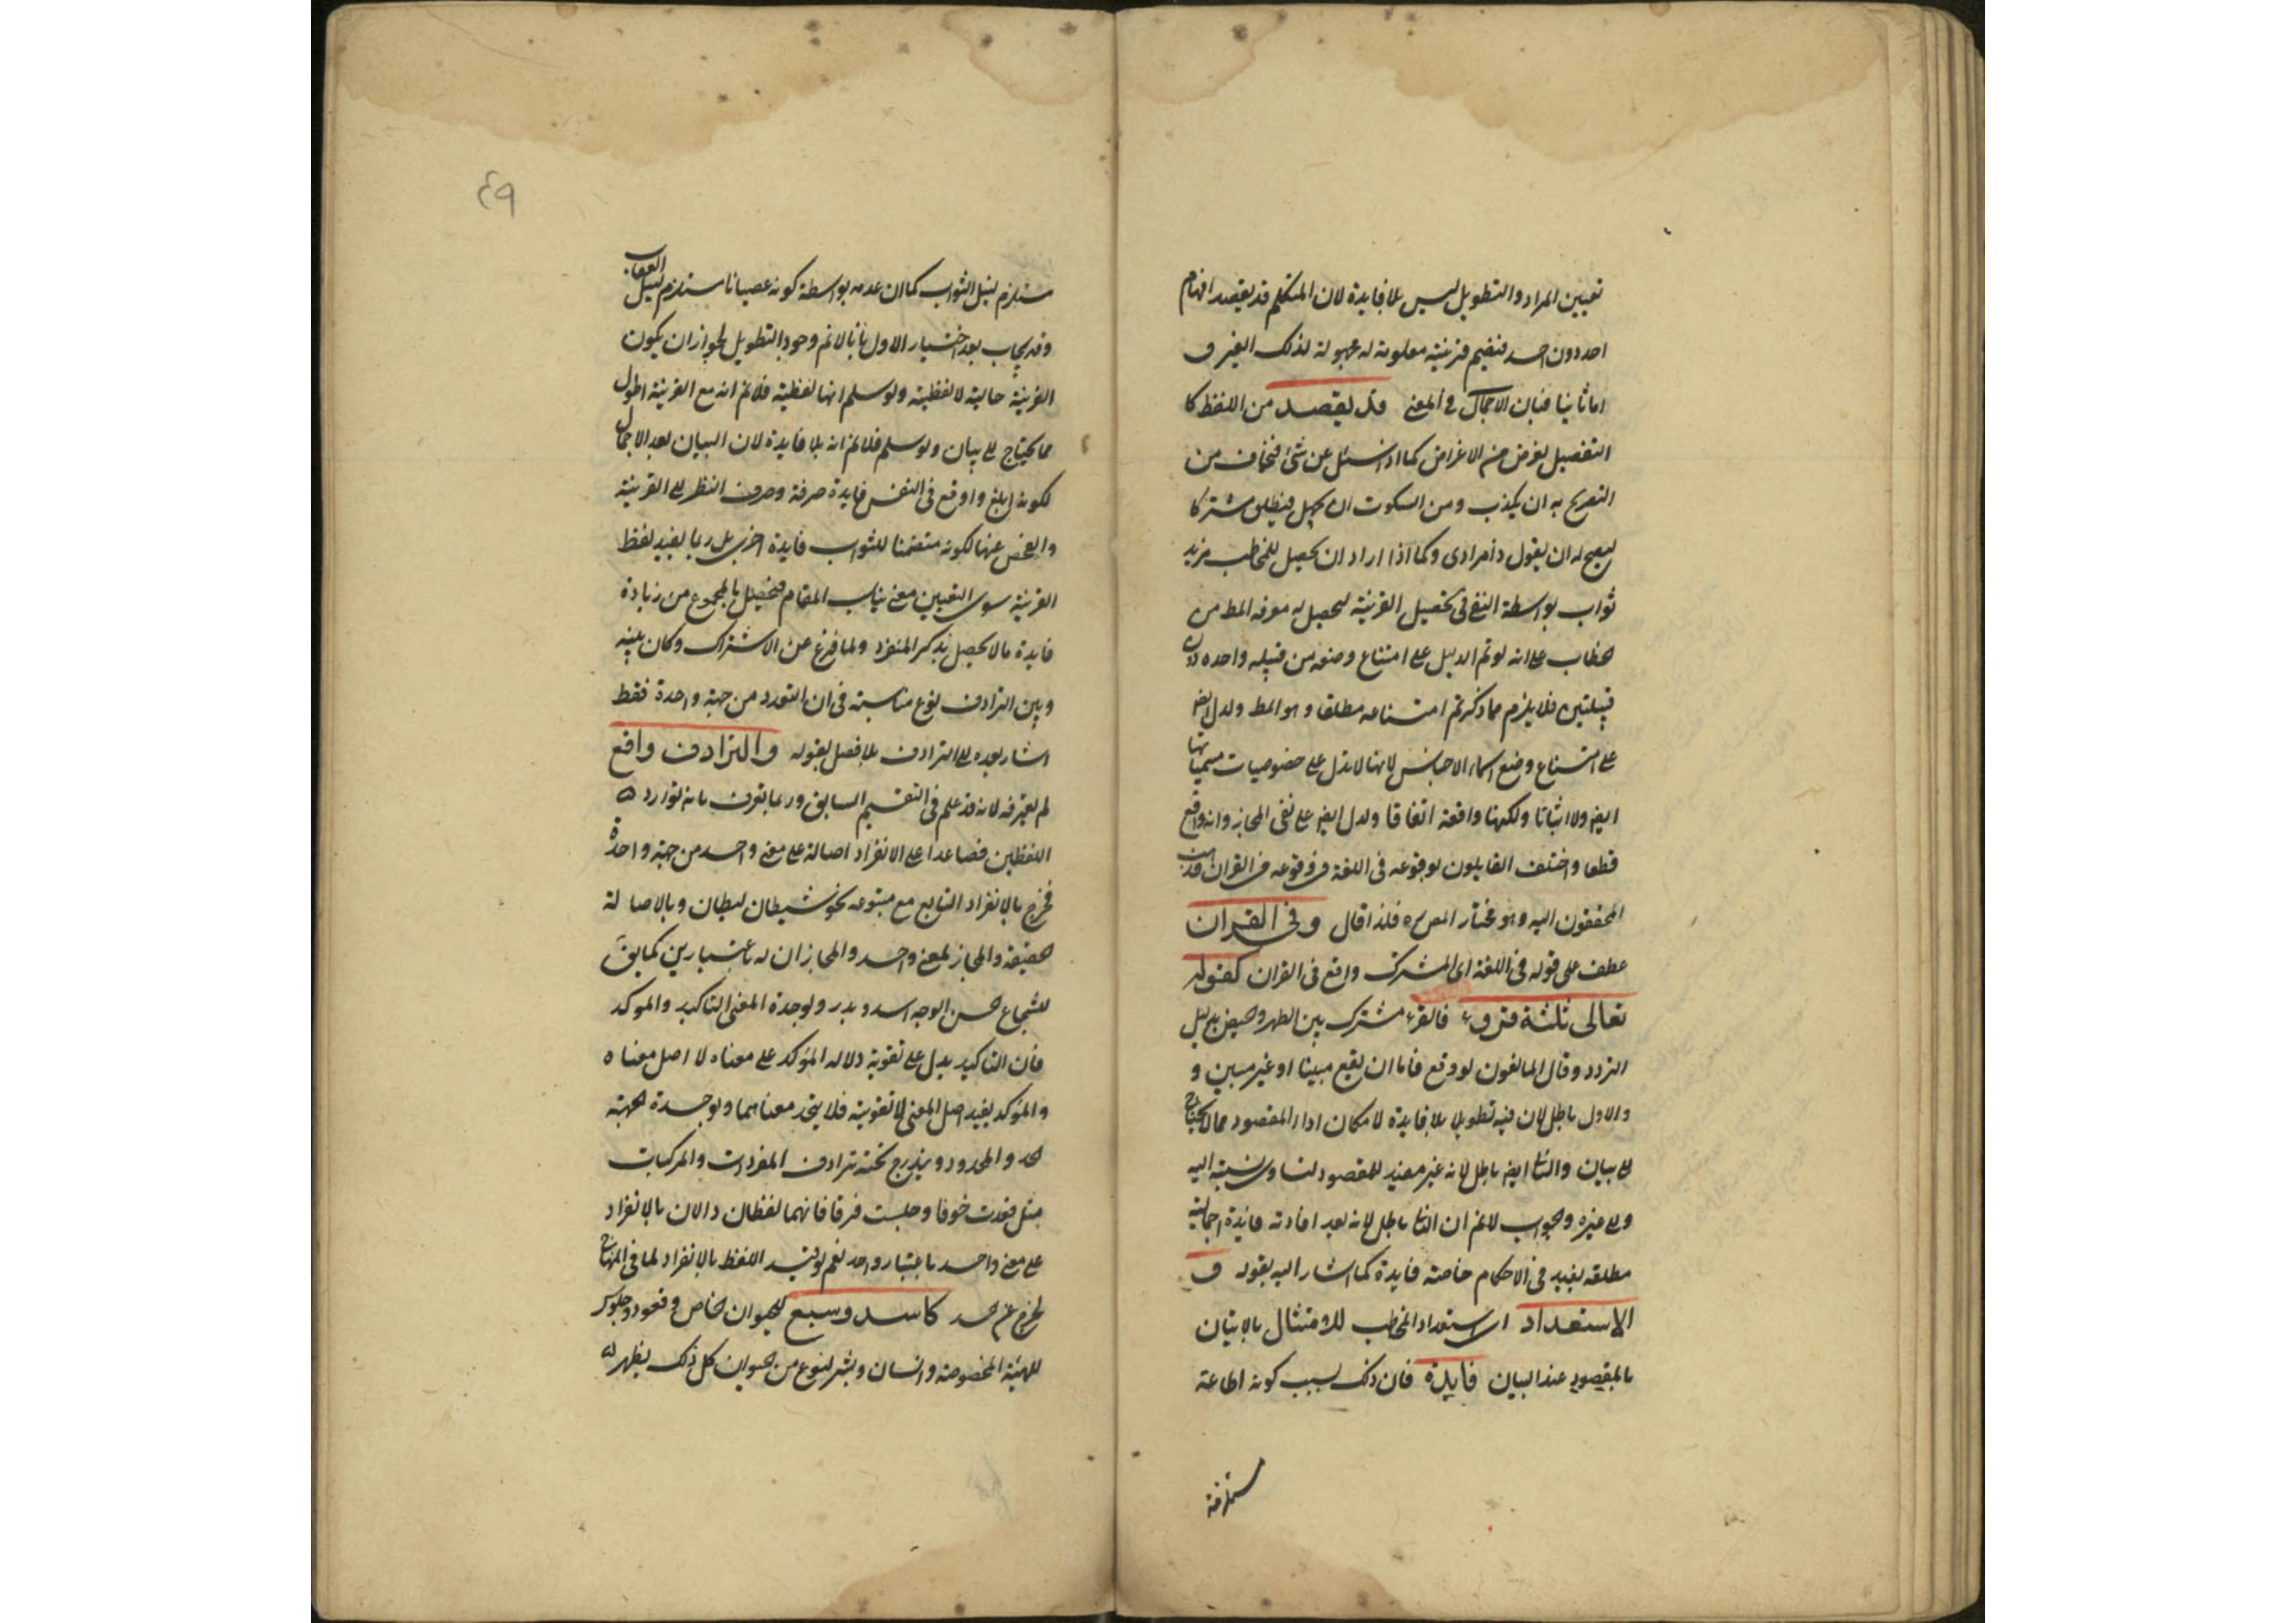 تعيين المراد والتطويل ليس بلا فايدة لان المتكلم قد يقصد افهام
احد دون احد فيضم قرينة معلومة له مجهولة لذلك الغير و
اما ثانيا فبان الاجمال في المعنى قد يقصد من اللفظ كا
التفصيل لغرض من الاغراض كما اذا سئل عن شئ فيخاف من
التصريح به ان يكذب ومن السكوت ان يجهل فيطلق مشتركا
ليصح له ان يقول ذا مرادى وكما اذا اراد ان يحصل للمخاطب مزيد
ثواب بواسطة في تحصيل القرينة ليحصل له معرفه المط من
الخطاب على انه لو تم الدليل على امتناع وضعه من قبيله واحده دون
قبيلتين فلا يلزم مما ذكرتم امتناعه مطلقا وهو المط ولدل ايض
على امتناع وضع اسماء الاجناس لانها لا تدل على خصوصيات مسمياتها
ايض ولا اثباتا ولكنها واقعة اتفاقا ولدل ايض على نفى المجاز وانه واقع
قطعا واختلف القايلون بوقوعه فى اللغة فى وقوعه فى القران فذهب
المحققون اليه وهو مختار المص ره فلذا قال وفى القران
عطف على قوله فى اللغة اى المشترك واقع فى القران كقوله
تعالى ثلثة قروء فالقرء مشترك بين الطهر والحيض على سبيل
التردد وقال المانعون لو وقع فاما ان يقع مبينا او غير مبين و
والاول باطل لان فيه تطويلا بلا فايدة لامكان اداء المقصود مما لا يحتاج
الى بيان والثانى ايض باطل لانه غير مفيد للمقصود لتساوى نسبته اليه
والى غيره والجواب لا نم ان الثانى باطل لانه بعد افادته فايدة اجمالية
مطلقه يفيد فى الاحكام خاصة فايدة كما اشار اليه بقوله و
الاستعداد اى استعداد المخاطب للامتثال بالاتيان
بالمقصود عند البيان فايدة فان ذلك بسبب كونه اطاعة
مستلزمة
٤٩
مستلزم لنيل الثواب كما ان عدمه بواسطة كونه عصيانا مستلزم لنيل العقاب
وقد يجاب بعد اختيار الاول بانا لا نم وجود التطويل لجواز ان يكون
القرينة حالية لا لفظية ولو سلم انها لفظية فلا نم انه مع القرينة اطول
مما يحتاج الى بيان ولو سلم فلا نم انه بلا فايدة لان البيان بعد الاجمال
لكونه ابلغ واوقع فى النفس فايدة صرفة وصرف النظر الى القرينة
والفحص عنها لكونه متضمنا للثواب فايدة اخرى بل ربما يفيد لفظ
القرينة سوى التعيين معنى يناسب المقام فيحصل بالمجموع من زيادة
فايدة ما لا يحصل بذكر المنفرد ولما فرغ عن الاشتراك وكان بينه
وبين الترادف نوع مناسبة فى ان التعدد من جهة واحدة فقط
اشار بعده الى الترادف بلا فصل بقوله والترادف واقع
لم يعرفه لانه قد علم فى التقسيم السابق وربما يعرف بانه توارد
اللفظين فصاعدا على الانفراد اصالة على معنى واحد من جهة واحدة
فخرج بالانفراد التابع مع متبوعه نحو شيطان ليطان وبالاصالة
الحقيقة والمجاز لمعنى واحد والمجازان له باعتبارين كما يق
للشجاع حسن الوجه اسد وبدر وبوحدة المعنى التاكيد والموكد
فان التاكيد يدل على تقوية دلاله المؤكد على معناه لا اصل معناه
والمؤكد يفيد اصل المعنى لا تقويته فلا يتحد معناهما وبوحدة الجهة
الحد والمحدود ويندرج تحته ترادف المفردات والمركبات
مثل قعدت خوفا وجلست فرقا فانهما لفظان دالان بالانفراد
على معنى واحد باعتبار واحد نعم لو قيد اللفظ بالانفراد كما فى المنهاج
لخرج عن الحد كاسد وسبع للحيوان الخاص وقعود وجلوس
للهيئة المخصوصة وانسان وبشر لنوع من الحيوان كل ذلك يظهر